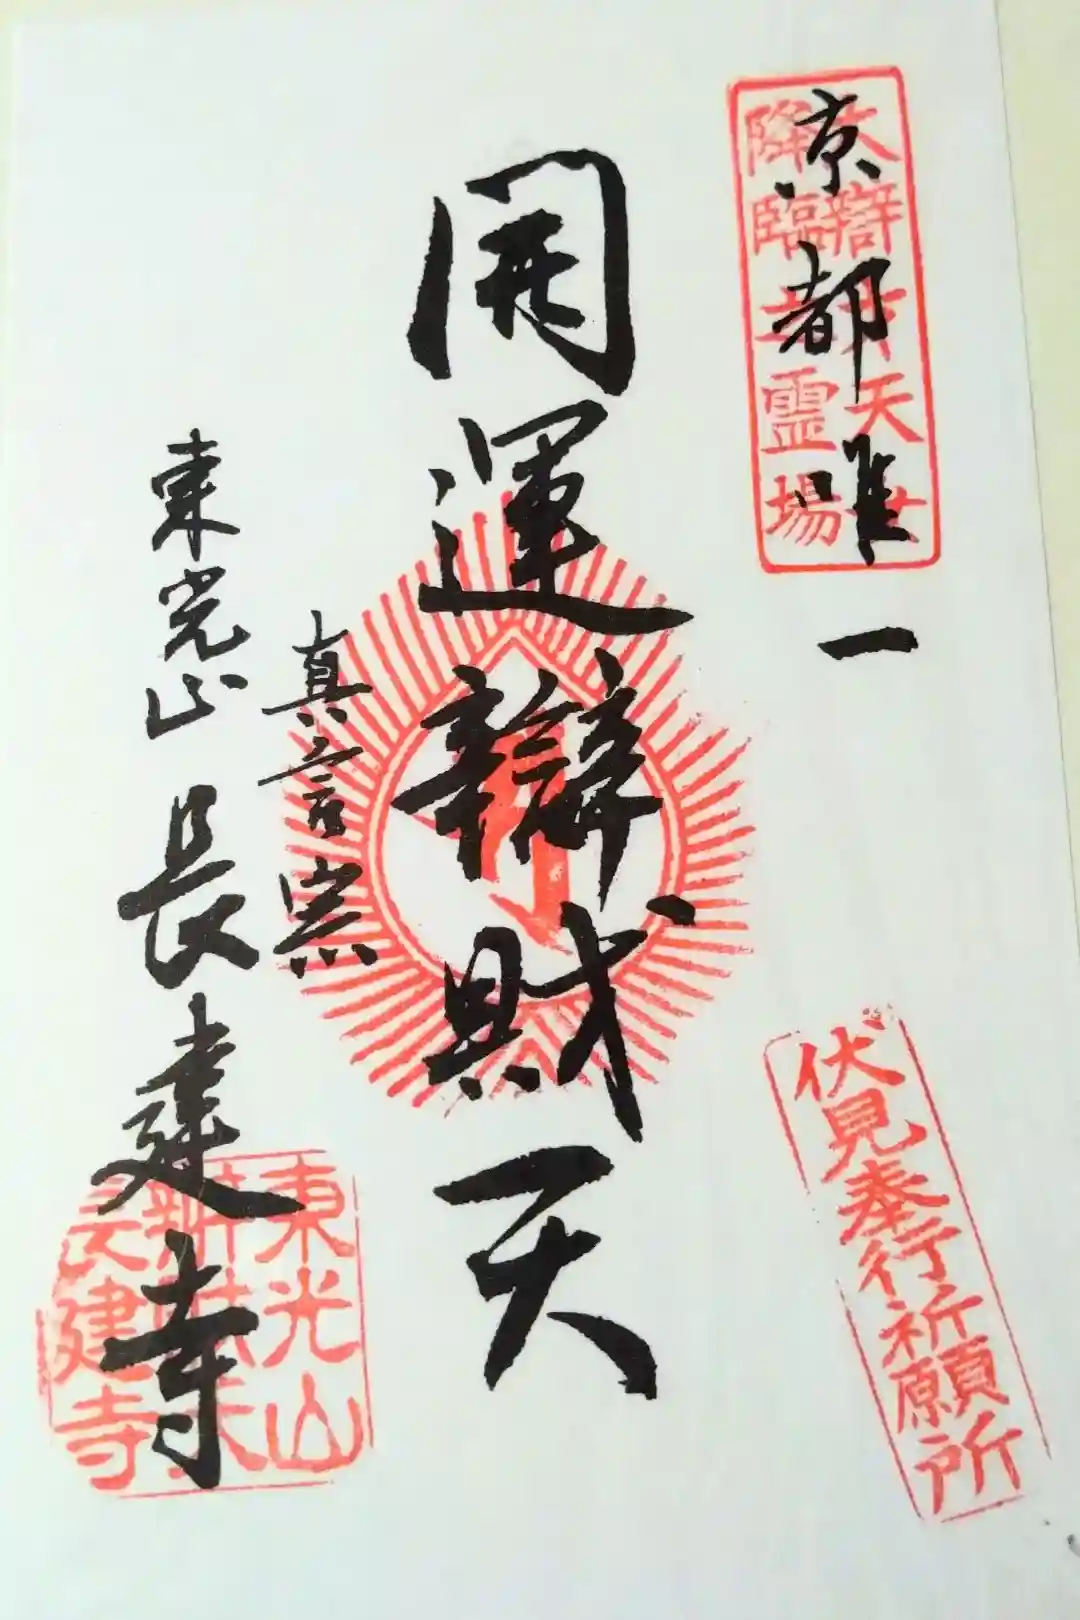 大辯才天女
降臨之霊場
京都唯一
伏見奉行祈願所
開運辯財天
真言宗
東光山 長建寺
東光山
辯財天
長建寺